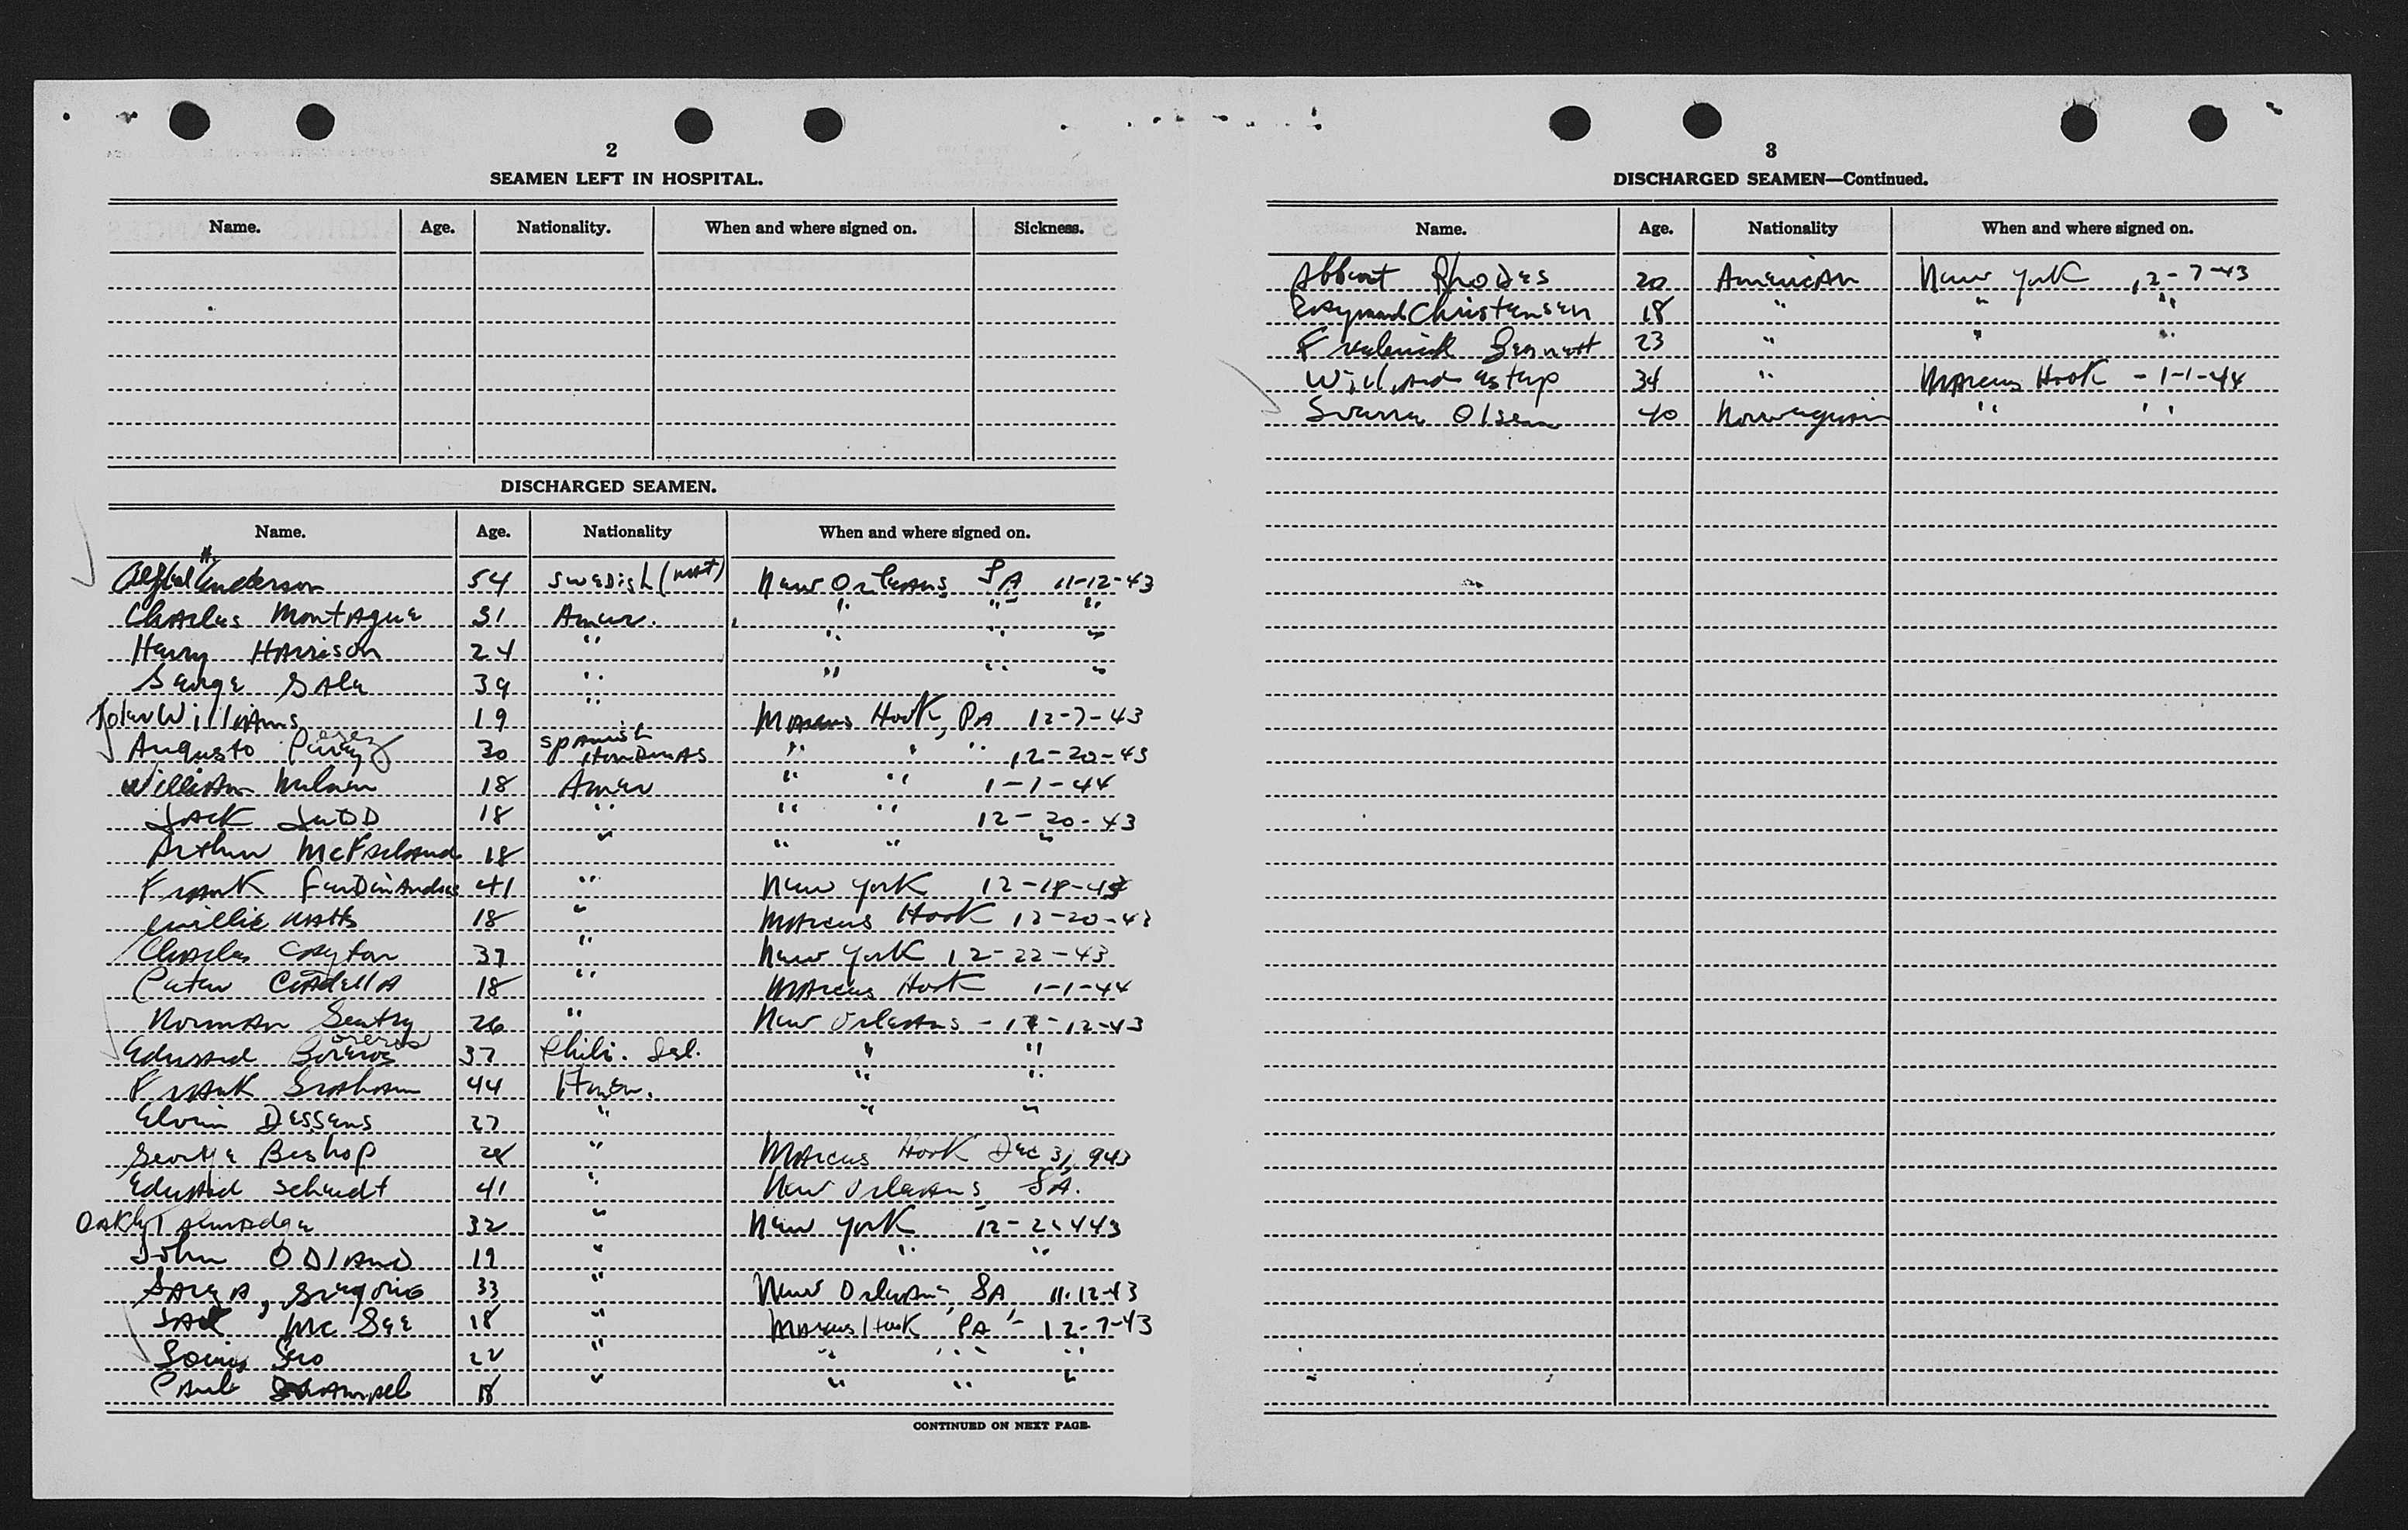 2
SEAMEN LEFT IN HOSPITAL.
Name. Age. Nationality. When and where signed on. Sickness.
DISCHARGED SEAMEN.
Name. Age. Nationality When and where signed on.
H. Anderson 54 Swedish (nat) New Orleans LA 11-12-43
Charles Montague 31 Amer. " " "
Harry Harrison 24 " " " "
George Gale 39 " " " "
Williams 19 " Marcus Hook, PA 12-7-43
Augusto Perez 30 Spanish Honduras " " " 12-20-43
William 18 Amer " " 1-1-44
Jack Judd 18 " " " 12-20-43
Arthur McFarland 18 " " " "
Frank 41 " New York 12-18-43
Willie Watts 18 " Marcus Hook 12-20-43
Charles Clayton 37 " New York 12-22-43
Peter 18 " Marcus Hook 1-1-44
Norman Gentry 26 " New Orleans - 12-43
Edward 37 Phili. Isl. " "
Frank Graham 44 Amer. " "
Elvin Dessens 27 " " "
George Bishop " Marcus Hook Dec 31, 943
Edward Schmidt 41 " New Orleans LA.
Oakley Talmadge 32 " New York 12-
John Odland 19 " " "
Gregorio 33 " New Orleans LA 11-12-43
Jack McGee 18 " Marcus Hook PA - 12-7-43
22 " " " "
Paul 18 " " " "
CONTINUED ON NEXT PAGE.
3
DISCHARGED SEAMEN—Continued.
Name. Age. Nationality When and where signed on.
Rhodes 20 American New York 12-7-43
Raymond Christensen 18 " " "
Frederick Bennett 23 " " "
Willard Estep 34 " Marcus Hook - 1-1-44
Olsen 40 Norwegian " "